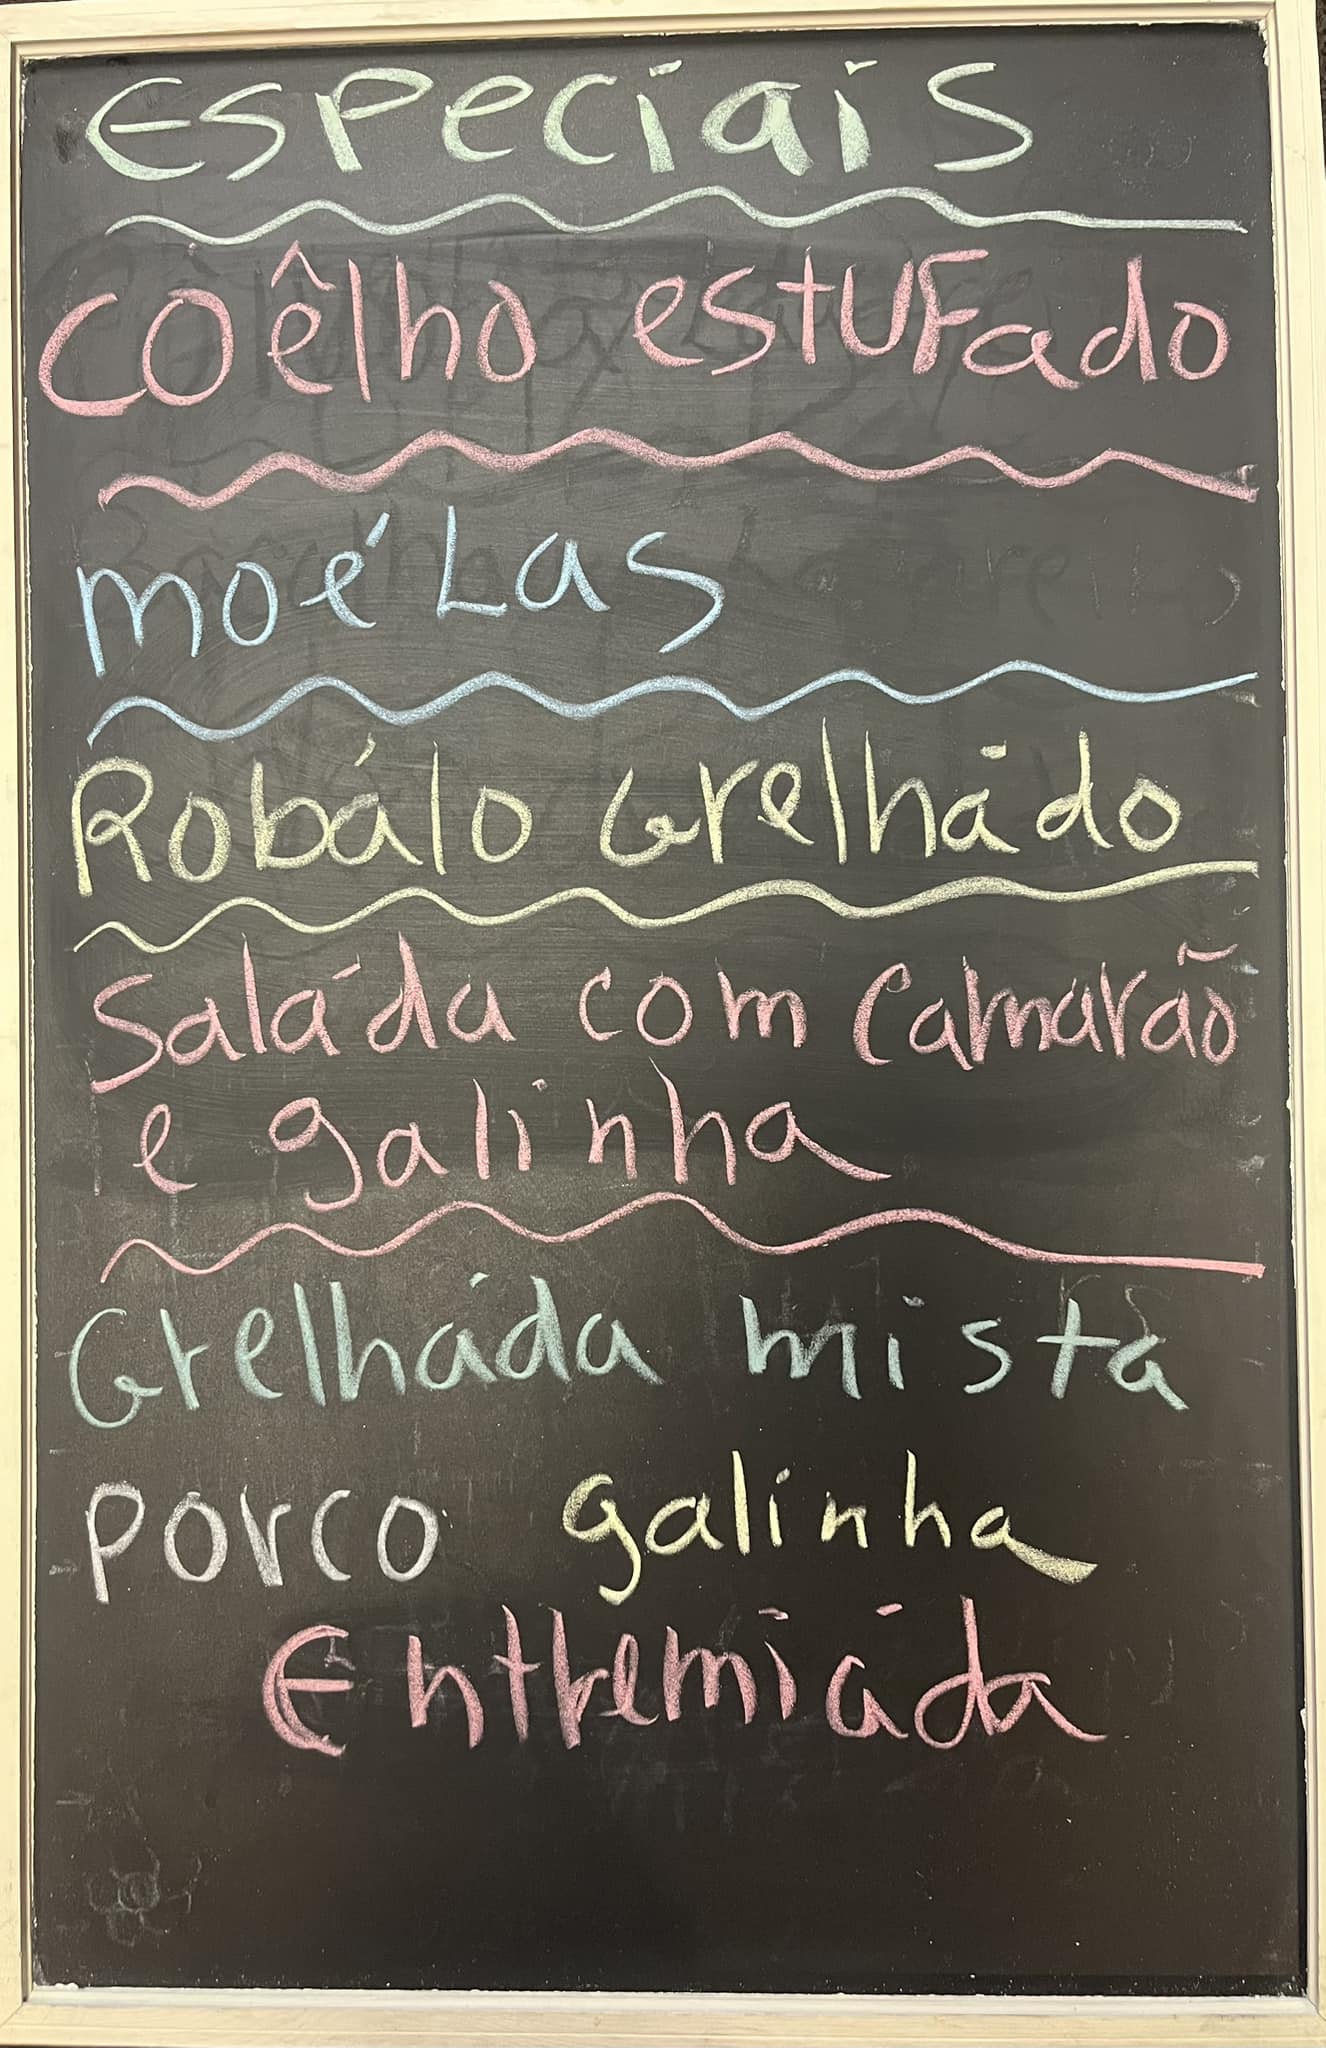 Especiais
Coêlho estufado
moélas
Robálo Grelhádo
Saláda com Camarão
e galinha
Grelháda mista
Porco galinha
Entremiáda